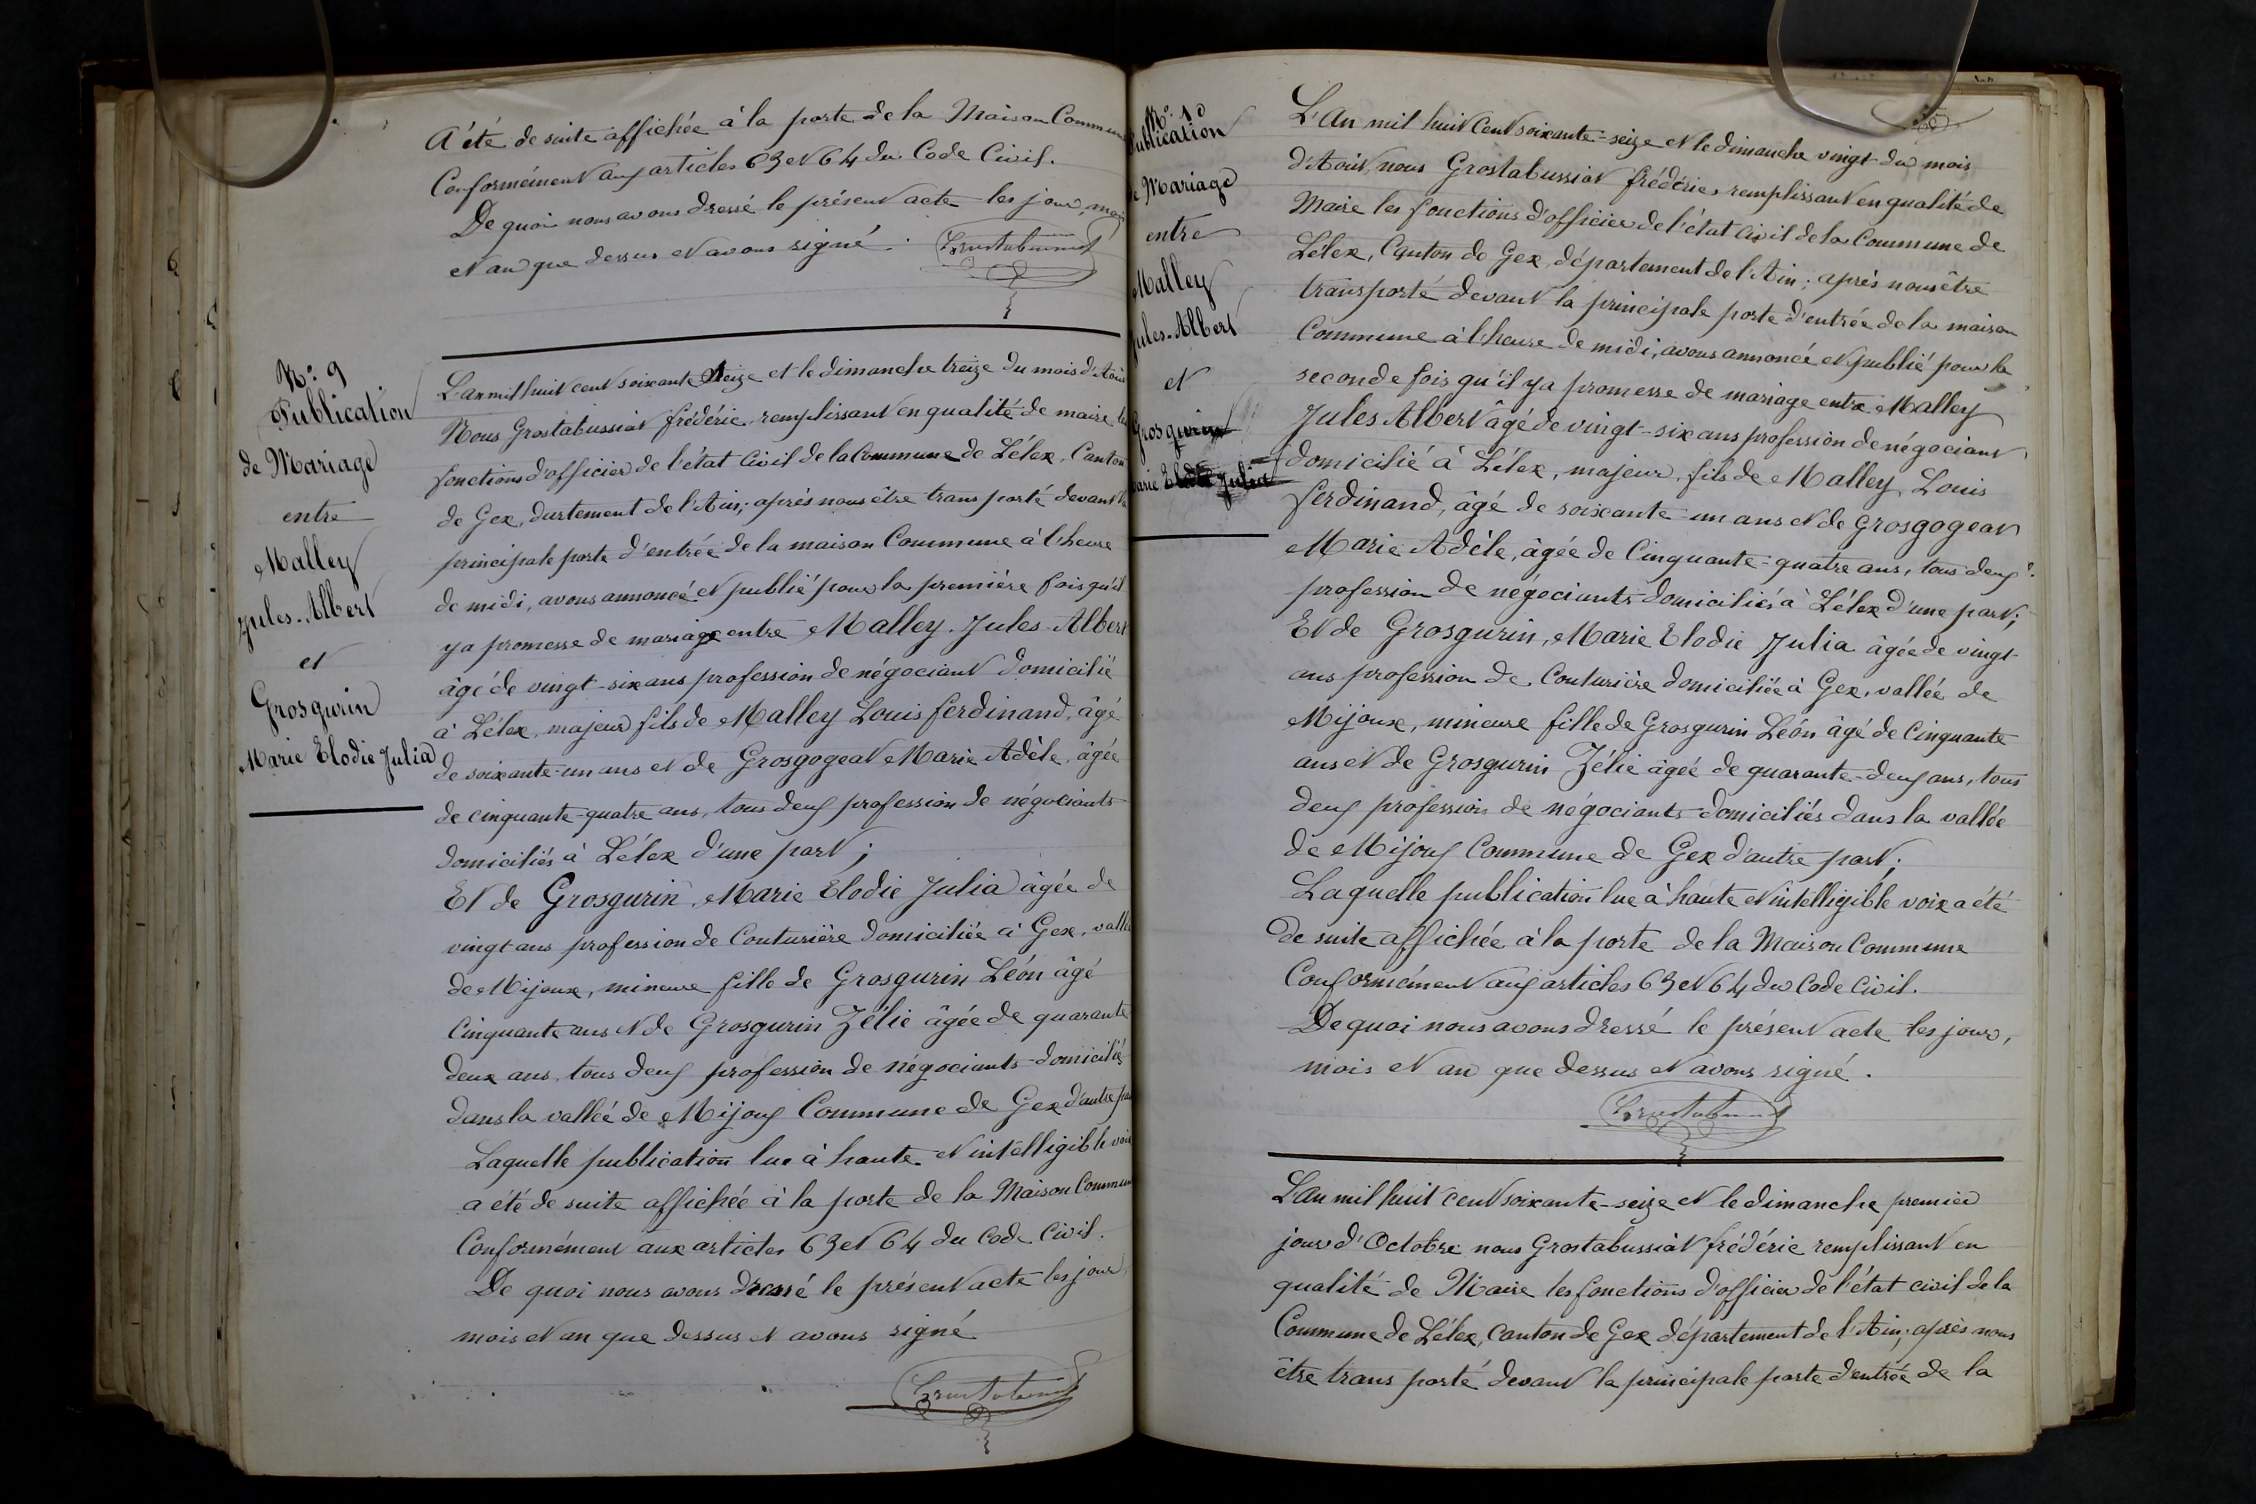 A été de suite affichée à la porte de la Maison Commune
Conformément aux articles 63 et 64 du Code Civil.
De quoi nous avons dressé le présent acte les jour, mois
et an que dessus et avons signé.
Grostabussiat
Nº. 9
Publication
de Mariage
entre
Malley
Jules-Albert
et
Grosgurin
Marie Elodie Julia
L'an mil huit cent soixante Seize et le dimanche treize du mois d'Août
Nous Grostabussiat frédéric, remplissant en qualité de maire les
fonctions d'officier de l'état Civil de la Commune de Lélex, Canton
de Gex, durtement de l'Ain; après nous être transporté devant la
principale porte d'entrée de la maison Commune à l'heure
de midi, avons annoncé et publié pour la première fois qu'il
y a promesse de mariage entre Malley. Jules-Albert
âgé de vingt-six ans profession de négociant domicilié
à Lélex, majeur fils de Malley Louis ferdinand, âgé
de soixante-un ans et de Grosgogeat Marie Adèle, âgée
de cinquante-quatre ans, tous deux profession de négociants
domiciliés à Lélex d'une part;
Et de Grosgurin, Marie Elodie Julia âgée de
vingt ans profession de Couturière domiciliée à Gex, vallée
de Mijoux, mineure fille de Grosgurin Léon âgé
Cinquante ans et de Grosgurin Zélie âgée de quarante
deux ans, tous deux profession de négociants domiciliés
dans la vallée de Mijoux Commune de Gex d'autre part
Laquelle publication lue à haute et intelligible voix
a été de suite affichée à la porte de la Maison Commune
Conformément aux articles 63 et 64 du Code Civil.
De quoi nous avons dressé le présent acte les jour,
mois et an que dessus et avons signé
Grostabussiat
Nº. 10
Publication
de Mariage
entre
Malley
Jules-Albert
et
Grosgurin
Marie Elodie Julia
L'An mil huit Cent soixante-seize et le dimanche vingt du mois
d'Août, nous Grostabussiat frédéric, remplissant en qualité de
Maire les fonctions d'officier de l'état Civil de la Commune de
Lélex, Canton de Gex, département de l'Ain; après nous être
transporté devant la principale porte d'entrée de la maison
Commune à l'heure de midi, avons annoncé et publié pour la
seconde fois qu'il y a promesse de mariage entre Malley
Jules Albert âgé de vingt-six ans profession de négociant
domicilié à Lélex, majeur, fils de Malley, Louis
ferdinand, âgé de soixante-un ans et de Grosgogeat
Marie Adèle, âgée de Cinquante-quatre ans, tous deux
profession de négociants domiciliés à Lélex d'une part;
Et de Grosgurin, Marie Elodie Julia âgée de vingt
ans profession de Couturière domiciliée à Gex, vallée de
Mijoux, mineure fille de Grosgurin Léon âgé de Cinquante
ans et de Grosgurin Zélie âgée de quarante-deux ans, tous
deux profession de négociants domiciliés dans la vallée
de Mijoux Commune de Gex d'autre part;
Laquelle publication lue à haute et intelligible voix a été
de suite affichée à la porte de la Maison Commune
Conformément aux articles 63 et 64 du Code Civil.
De quoi nous avons dressé le présent acte les jour,
mois et an que dessus et avons signé.
Grostabussiat
L'An mil huit cent soixante-seize et le dimanche premier
jour d'Octobre nous Grostabussiat frédéric remplissant en
qualité de Maire les fonctions d'officier de l'état civil de la
Commune de Lélex, canton de Gex département de l'Ain; après nous
être transporté devant la principale porte d'entrée de la